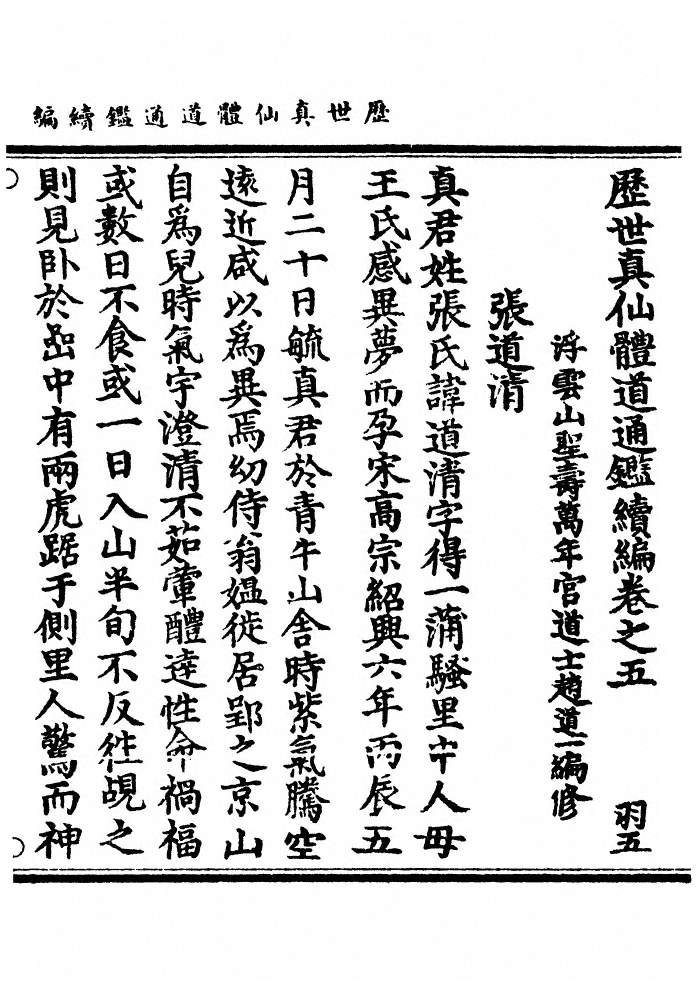 歷世真仙體道通鑑續編
歷世真仙體道通鑑續編卷之五　羽五
浮雲山聖壽萬年宮道士趙道一編修
張道清
真君姓張氏諱道清字得一蒲騷里中人母
王氏感異夢而孕宋高宗紹興六年丙辰五
月二十日毓真君於青牛山舍時紫氣騰空
遠近咸以為異焉幼侍翁媼徙居郢之京山
自為兒時氣宇澄清不茹葷醴達性命禍福
或數日不食或一日入山半旬不反徃覘之
則見卧於嵒中有兩虎踞于側里人驚而神